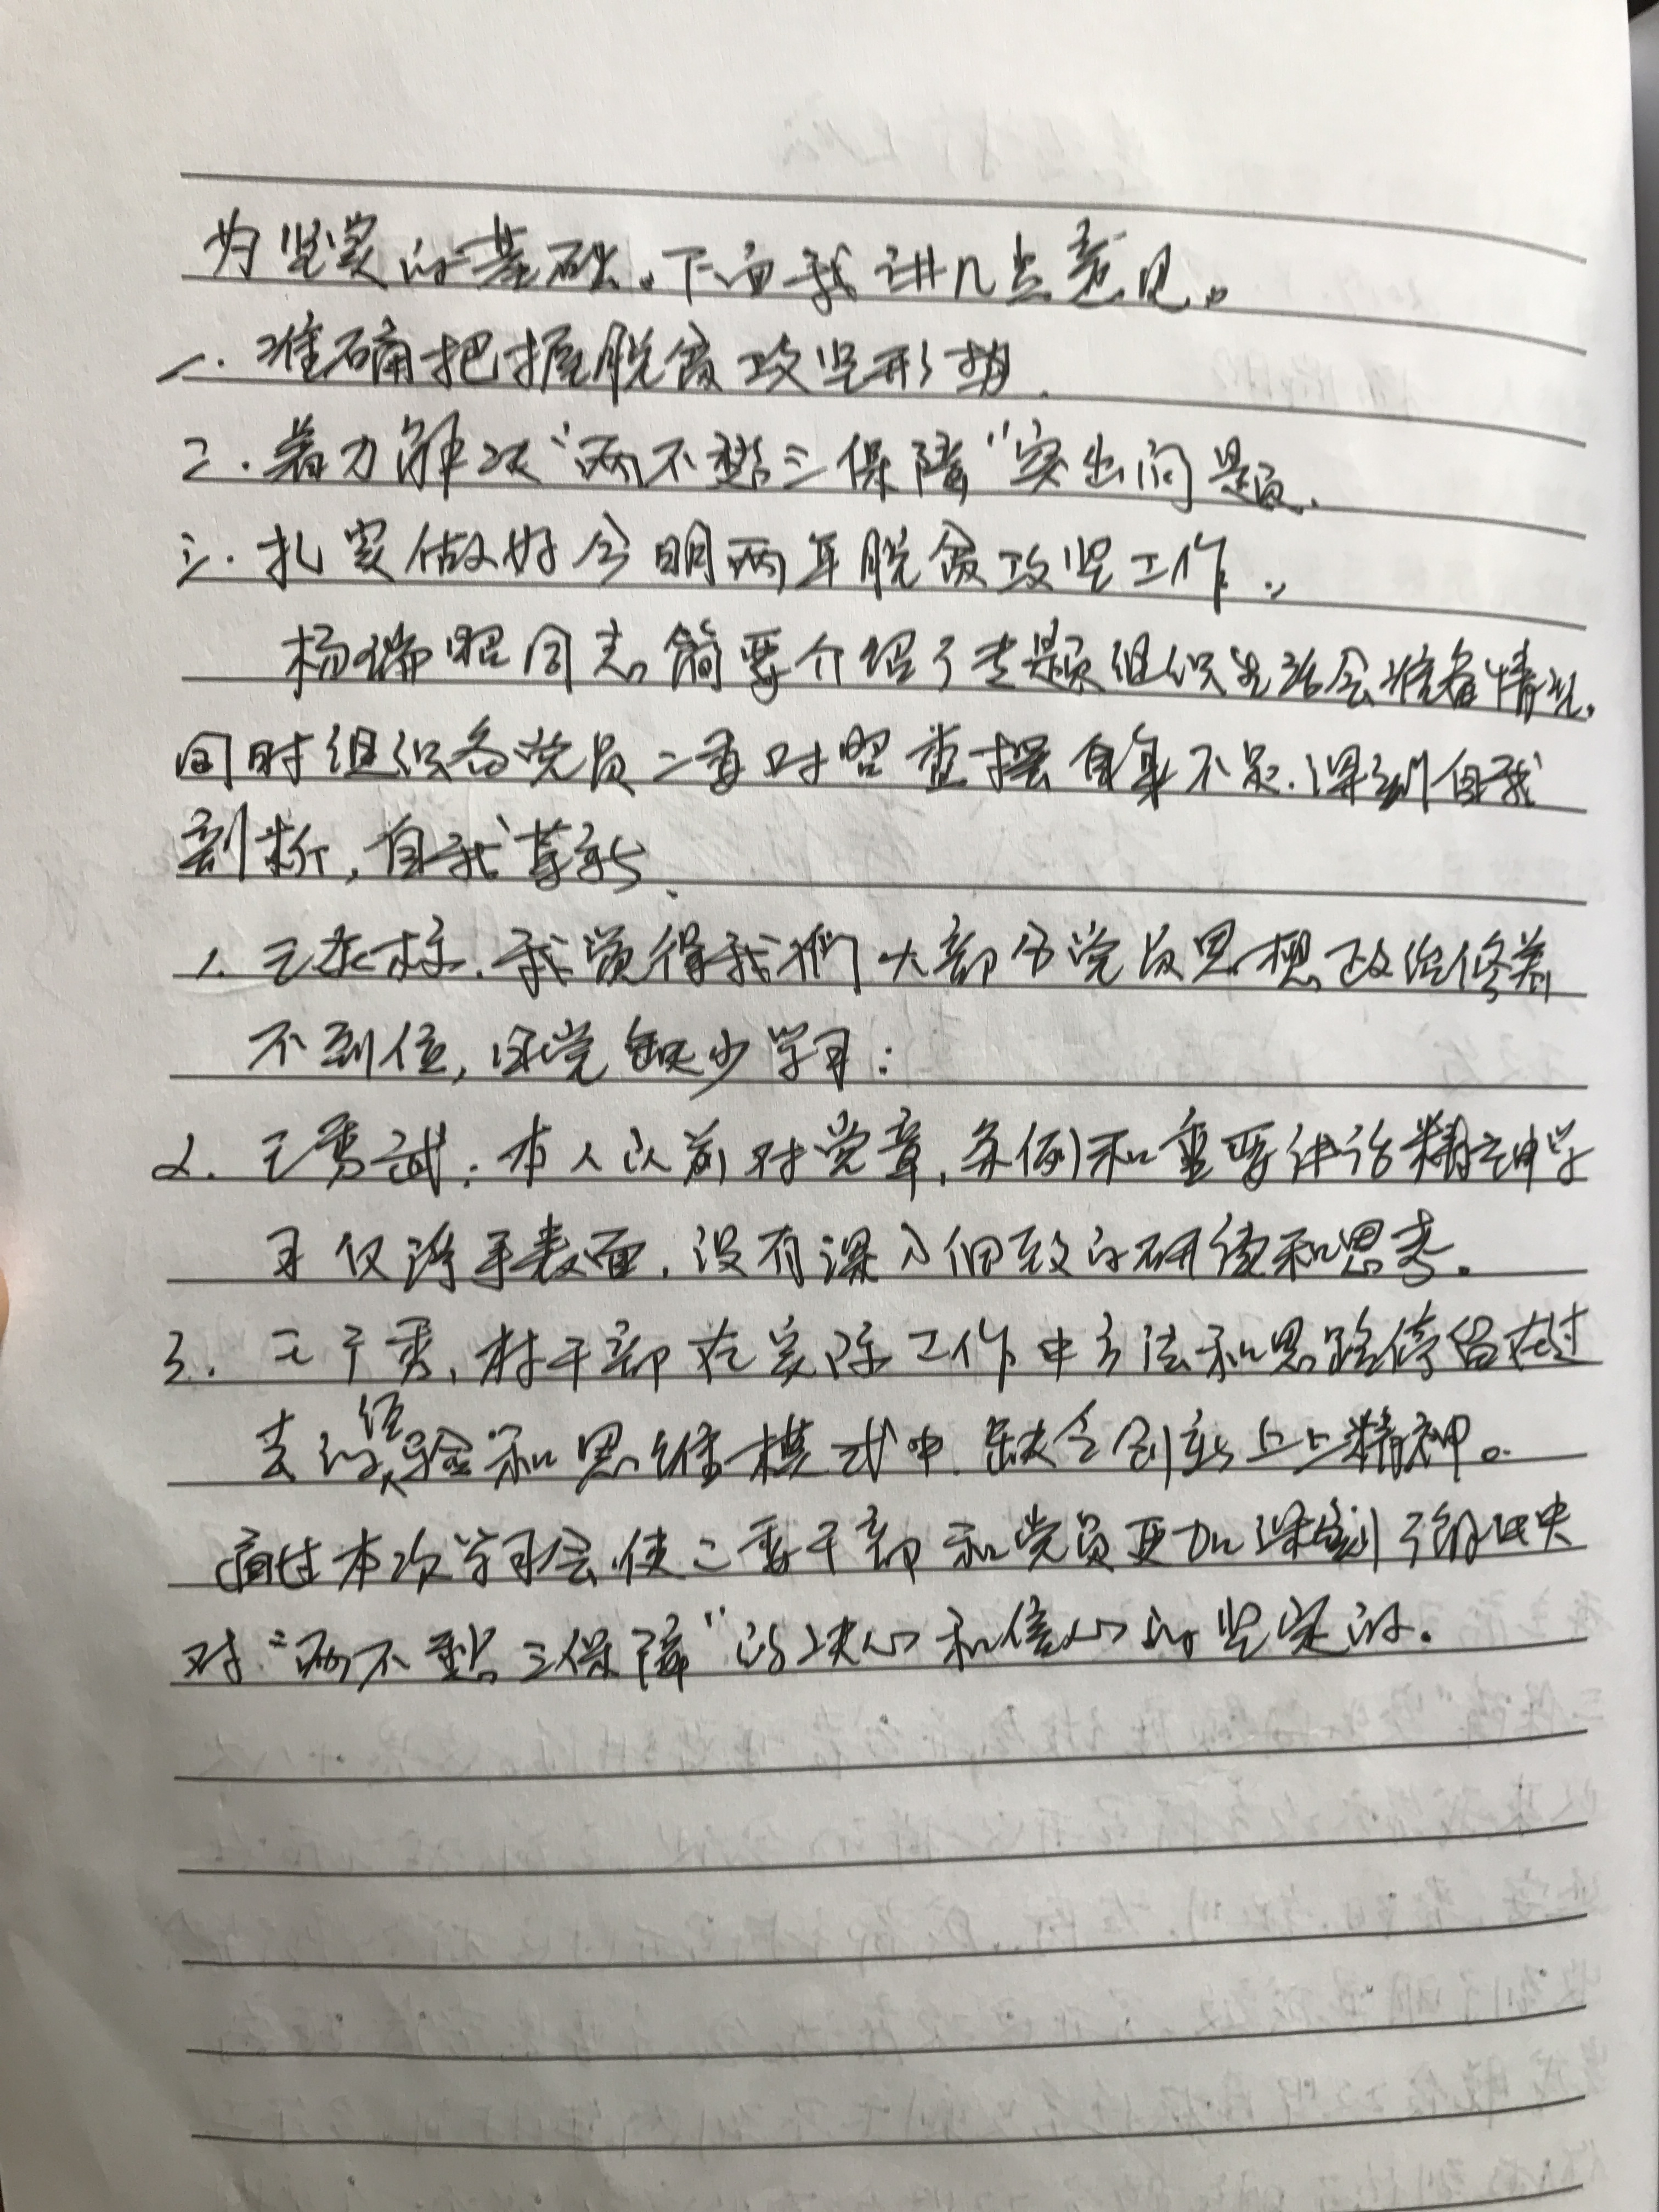 为坚实的基础。下面我讲几点意见。
一.准确把握脱贫攻坚形势.
二.着力解决“两不愁三保障”突出问题.
三.扎实做好今明两年脱贫攻坚工作.
杨瑞昭同志简要介绍了专题组织生活会准备情况.
同时组织各党员二委对照查摆自身不足.深刻自我
剖析,自我革新.
1.王在林.我觉得我们大部分党员思想政治修养
不到位,日常缺少学习:
2.王秀武:本人以前对党章,条例和重要讲话精神学
习仅浮于表面,没有深入细致的研读和思考。
3.王广秀,村干部在实际工作中方法和思路停留在过
去的经验和思维模式中.缺乏创新上上精神。
通过本次学习会,使二委干部和党员更加深刻了解中央
对“两不愁三保障”的决心和信心的坚定的.